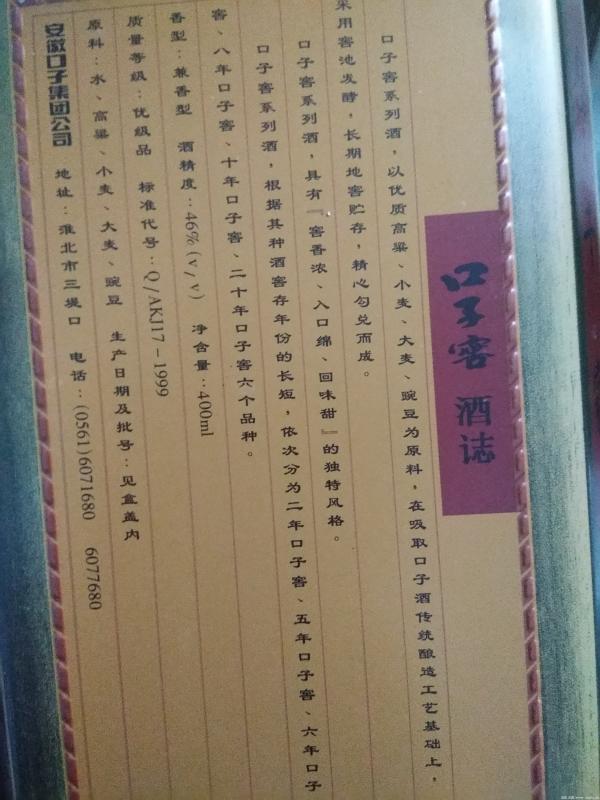 口子窖 酒誌
口子窖系列酒，以优质高粱、小麦、大麦、豌豆为原料，在吸取口子酒传统酿造工艺基础上，
采用窖池发酵，长期地窖贮存，精心勾兑而成。
口子窖系列酒，具有『窖香浓、入口绵、回味甜』的独特风格。
口子窖系列酒，根据其种酒窖存年份的长短，依次分为二年口子窖、五年口子窖、六年口子
窖、八年口子窖、十年口子窖、二十年口子窖六个品种。
香型：兼香型 酒精度：46%(v/v) 净含量：400ml
质量等级：优级品 标准代号：Q/AKJ17-1999
原料：水、高粱、小麦、大麦、豌豆 生产日期及批号：见盒盖内
安徽口子集团公司 地址：淮北市三堤口 电话：(0561)6071680 6077680